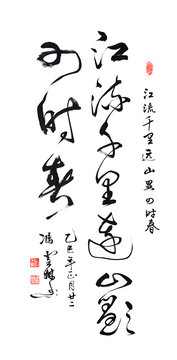 江流千里远山叠四时春
江流千里远山
四时春
乙巳年正月廿二
冯